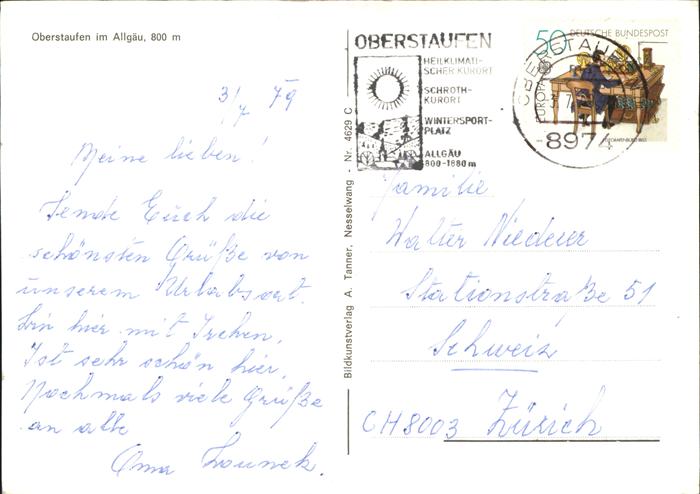 Oberstaufen im Allgäu, 800 m
3/7 79
Meine lieben!
Sende Euch die
schönsten Grüße von
unserem Urlaubsort.
bin hier mit
Ist sehr schön hier,
Nochmals viele Grüße
an alle
Oma
Bildkunstverlag A. Tanner, Nesselwang - Nr. 4629 C
OBERSTAUFEN
HEILKLIMATI-
SCHER KURORT
SCHROTH-
KURORT
WINTERSPORT-
PLATZ
ALLGÄU
800-1880 m
50 DEUTSCHE BUNDESPOST
EUROPA
OBERSTAUFEN
8974
Familie
Walter Niederer
Stationstraße 51
Schweiz
CH 8003 Zürich